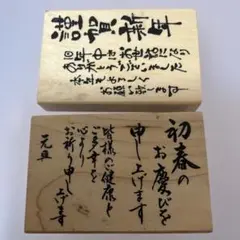 謹賀新年
旧年中はお世話になり
ありがとうございました
本年もよろしく
お願い致します
初春の
お慶びを
申し上げます
皆様のご健康と
ご多幸を
心より
お祈り申し上げます
元旦